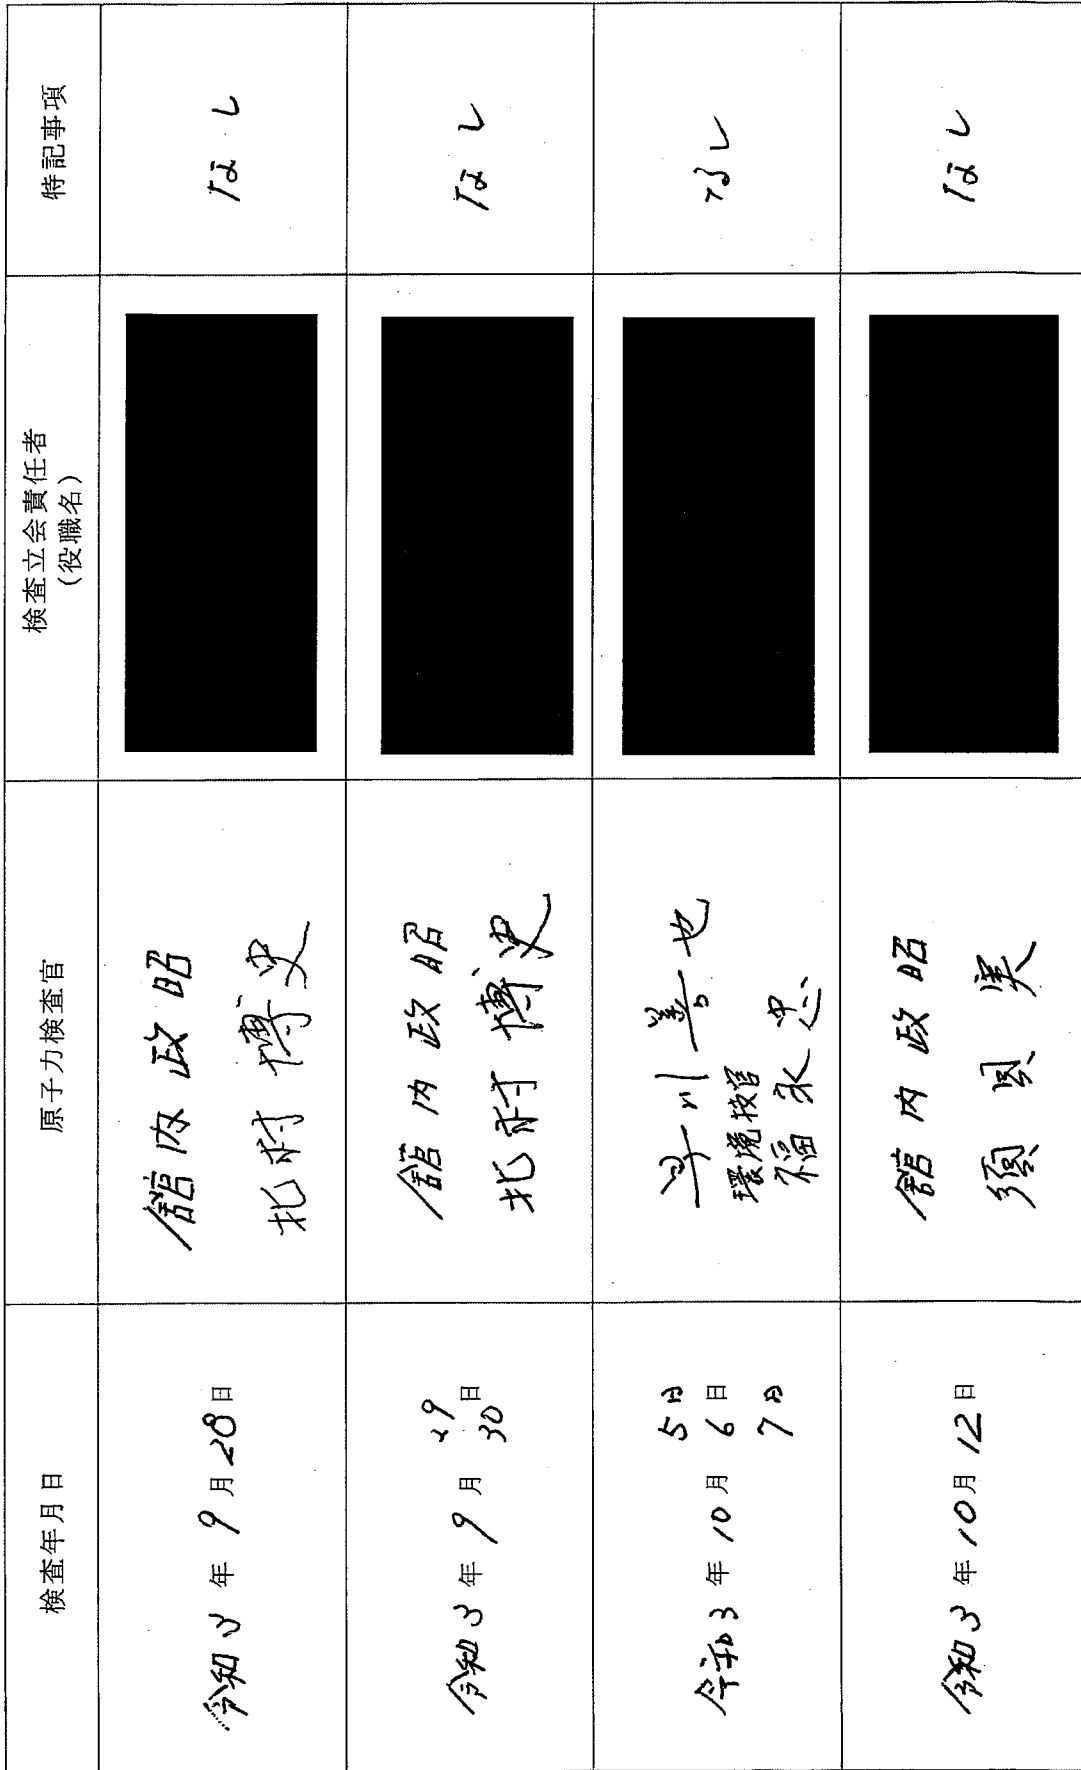 検査年月日
原子力検査官
検査立会責任者
(役職名)
特記事項
令和3年9月28日
舘内政昭
北村博史
なし
令和3年9月29日
30
舘内政昭
北村博史
なし
5日
令和3年10月6日
7日
早川善也
環境技官
福永忠
なし
令和3年10月12日
舘内政昭
須貝実
なし